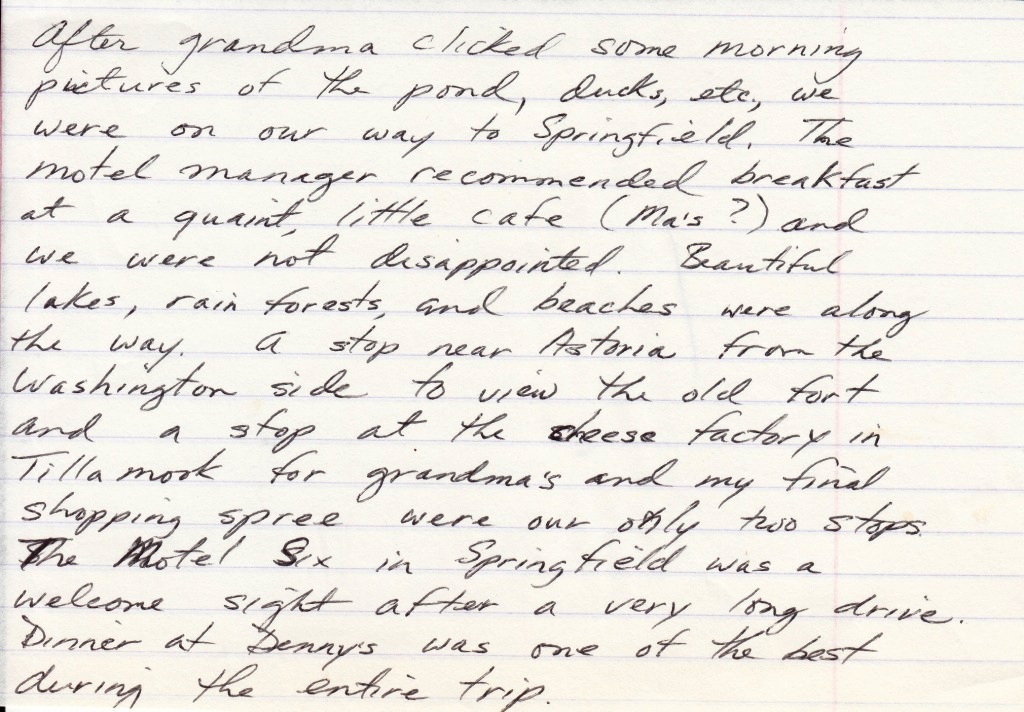 After grandma clicked some morning
pictures of the pond, ducks, etc., we
were on our way to Springfield. The
motel manager recommended breakfast
at a quaint, little cafe (Ma's?) and
we were not disappointed. Beautiful
lakes, rain forests, and beaches were along
the way. A stop near Astoria from the
Washington side to view the old fort
and a stop at the cheese factory in
Tillamook for grandma's and my final
shopping spree were our only two stops.
The Motel Six in Springfield was a
welcome sight after a very long drive.
Dinner at Denny's was one of the best
during the entire trip.